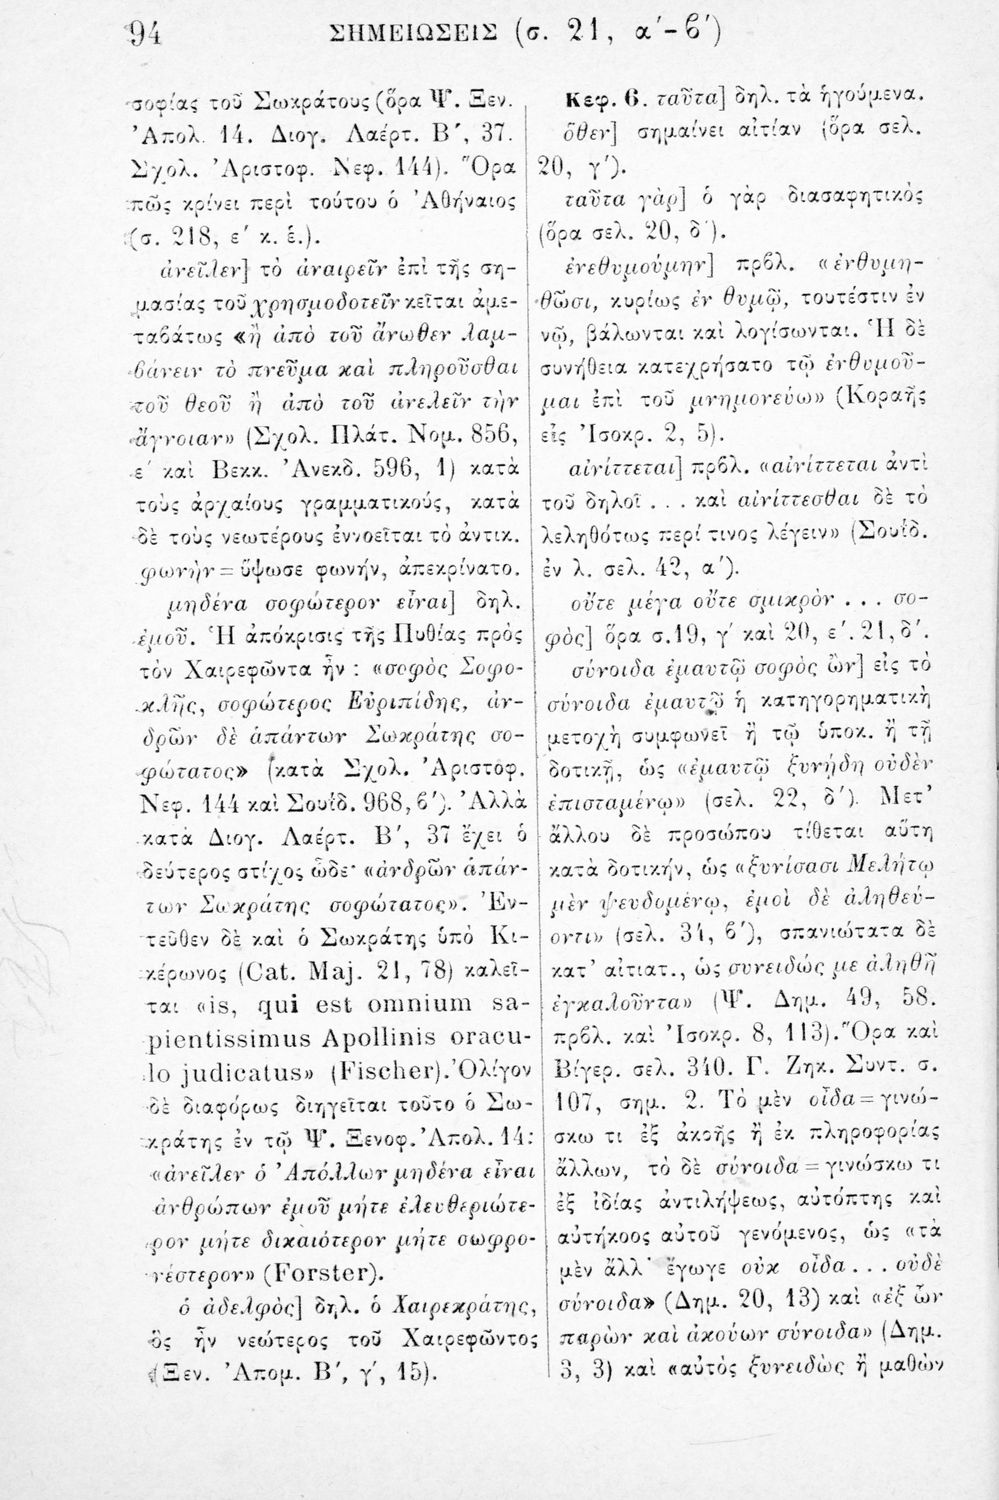 94 ΣΗΜΕΙΩΣΕΙΣ (σ. 21, α΄-ϐ΄)
σοφίας τοῦ Σωκράτους (ὅρα Ψ. Ξεν.
Ἀπολ. 14. Διογ. Λαέρτ. Β΄, 37.
Σχολ. Ἀριστοφ. Νεφ. 144). Ὅρα
πῶς κρίνει περὶ τούτου ὁ Ἀθήναιος
(σ. 218, ε΄ κ. ἑ.).
ἀνεῖλεν] τὸ ἀναιρεῖν ἐπὶ τῆς ση-
μασίας τοῦ χρησμοδοτεῖν κεῖται ἀμε-
ταϐάτως «ἢ ἀπὸ τοῦ ἄνωθεν λαμ-
ϐάνειν τὸ πνεῦμα καὶ πληροῦσθαι
τοῦ θεοῦ ἢ ἀπὸ τοῦ ἀνελεῖν τὴν
ἄγνοιαν» (Σχολ. Πλάτ. Νομ. 856,
ε΄ καὶ Βεκκ. Ἀνεκδ. 596, 1) κατὰ
τοὺς ἀρχαίους γραμματικούς, κατὰ
δὲ τοὺς νεωτέρους ἐννοεῖται τὸ ἀντικ.
φωνὴν = ὕψωσε φωνήν, ἀπεκρίνατο.
μηδένα σοφώτερον εἶναι] δηλ.
ἐμοῦ. Ἡ ἀπόκρισις τῆς Πυθίας πρὸς
τὸν Χαιρεφῶντα ἦν : «σοφὸς Σοφο-
κλῆς, σοφώτερος Εὐριπίδης, ἀν-
δρῶν δὲ ἁπάντων Σωκράτης σο-
φώτατος» (κατὰ Σχολ. Ἀριστοφ.
Νεφ. 144 καὶ Σουΐδ. 968, ϐ΄). Ἀλλὰ
κατὰ Διογ. Λαέρτ. Β΄, 37 ἔχει ὁ
δεύτερος στίχος ὧδε· «ἀνδρῶν ἁπάν-
των Σωκράτης σοφώτατος». Ἐν-
τεῦθεν δὲ καὶ ὁ Σωκράτης ὑπὸ Κι-
κέρωνος (Cat. Maj. 21, 78) καλεῖ-
ται «is, qui est omnium sa-
pientissimus Apollinis oracu-
lo judicatus» (Fischer). Ὀλίγον
δὲ διαφόρως διηγεῖται τοῦτο ὁ Σω-
κράτης ἐν τῷ Ψ. Ξενοφ. Ἀπολ. 14:
«ἀνεῖλεν ὁ Ἀπόλλων μηδένα εἶναι
ἀνθρώπων ἐμοῦ μήτε ἐλευθεριώτε-
ρον μήτε δικαιότερον μήτε σωφρο-
νέστερον» (Forster).
ὁ ἀδελφὸς] δηλ. ὁ Χαιρεκράτης,
ὃς ἦν νεώτερος τοῦ Χαιρεφῶντος
(Ξεν. Ἀπομ. Β΄, γ΄, 15).
Κεφ. 6. ταῦτα] δηλ. τὰ ἡγούμενα.
ὅθεν] σημαίνει αἰτίαν (ὅρα σελ.
20, γ΄).
ταῦτα γὰρ] ὁ γὰρ διασαφητικὸς
(ὅρα σελ. 20, δ΄).
ἐνεθυμούμην] πρϐλ. «ἐνθυμη-
θῶσι, κυρίως ἐν θυμῷ, τουτέστιν ἐν
νῷ, βάλωνται καὶ λογίσωνται. Ἡ δὲ
συνήθεια κατεχρήσατο τῷ ἐνθυμοῦ-
μαι ἐπὶ τοῦ μνημονεύω» (Κοραῆς
εἰς Ἰσοκρ. 2, 5).
αἰνίττεται] πρϐλ. «αἰνίττεται ἀντὶ
τοῦ δηλοῖ . . . καὶ αἰνίττεσθαι δὲ τὸ
λεληθότως περί τινος λέγειν» (Σουΐδ.
ἐν λ. σελ. 42, α΄).
οὔτε μέγα οὔτε σμικρὸν . . . σο-
φὸς] ὅρα σ. 19, γ΄ καὶ 20, ε΄. 21, δ΄.
σύνοιδα ἐμαυτῷ σοφὸς ὢν] εἰς τὸ
σύνοιδα ἐμαυτῷ ἡ κατηγορηματικὴ
μετοχὴ συμφωνεῖ ἢ τῷ ὑποκ. ἢ τῇ
δοτικῇ, ὡς «ἐμαυτῷ ξυνῄδη οὐδὲν
ἐπισταμένῳ» (σελ. 22, δ΄). Μετ᾽
ἄλλου δὲ προσώπου τίθεται αὕτη
κατὰ δοτικήν, ὡς «ξυνίσασι Μελήτῳ
μὲν ψευδομένῳ, ἐμοὶ δὲ ἀληθεύ-
οντι» (σελ. 34, ϐ΄), σπανιώτατα δὲ
κατ᾽ αἰτιατ., ὡς συνειδώς με ἀληθῆ
ἐγκαλοῦντα» (Ψ. Δημ. 49, 58.
πρϐλ. καὶ Ἰσοκρ. 8, 113). Ὅρα καὶ
Βίγερ. σελ. 340. Γ. Ζηκ. Συντ. σ.
107, σημ. 2. Τὸ μὲν οἶδα = γινώ-
σκω τι ἐξ ἀκοῆς ἢ ἐκ πληροφορίας
ἄλλων, τὸ δὲ σύνοιδα = γινώσκω τι
ἐξ ἰδίας ἀντιλήψεως, αὐτόπτης καὶ
αὐτήκοος αὐτοῦ γενόμενος, ὡς «τὰ
μὲν ἄλλ᾽ ἔγωγε οὐκ οἶδα . . . οὐδὲ
σύνοιδα» (Δημ. 20, 13) καὶ «ἐξ ὧν
παρὼν καὶ ἀκούων σύνοιδα» (Δημ.
3, 3) καὶ «αὐτὸς ξυνειδὼς ἢ μαθὼν